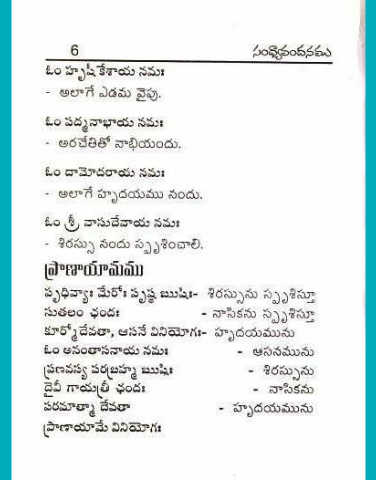 6 సంధ్యావందనము
ఓం హృషీకేశాయ నమః
- అలాగే ఎడమ వైపు.
ఓం పద్మనాభాయ నమః
- అరచేతితో నాభియందు.
ఓం దామోదరాయ నమః
- అలాగే హృదయము నందు.
ఓం శ్రీ వాసుదేవాయ నమః
- శిరస్సు నందు స్పృశించాలి.
ప్రాణాయామము
పృధివ్యాః మేరోః పృష్ఠ ఋషిః- శిరస్సును స్పృశిస్తూ
సుతలం ఛందః - నాసికను స్పృశిస్తూ
కూర్మోదేవతా, ఆసనే వినియోగః- హృదయమును
ఓం అనంతాసనాయ నమః - ఆసనమును
ప్రణవస్య పరబ్రహ్మ ఋషిః - శిరస్సును
దైవీ గాయత్రీ ఛందః - నాసికను
పరమాత్మా దేవతా - హృదయమును
ప్రాణాయామే వినియోగః